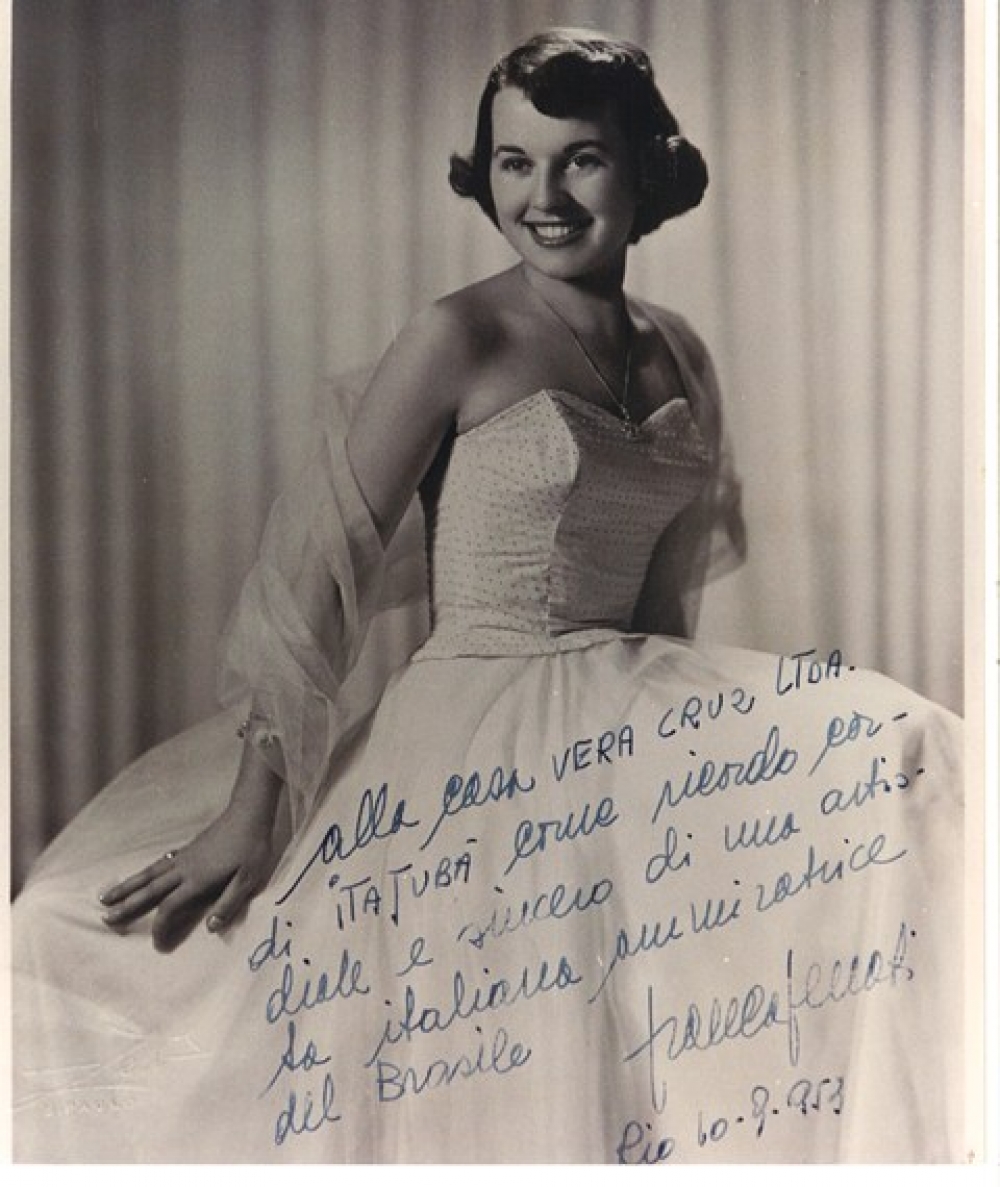 alla casa VERA CRUZ LTDA.
di "ITAJUBÀ" come ricordo cor-
diale e sincero di una artis-
ta italiana ammiratrice
del Brasile
Rio 10-9-953